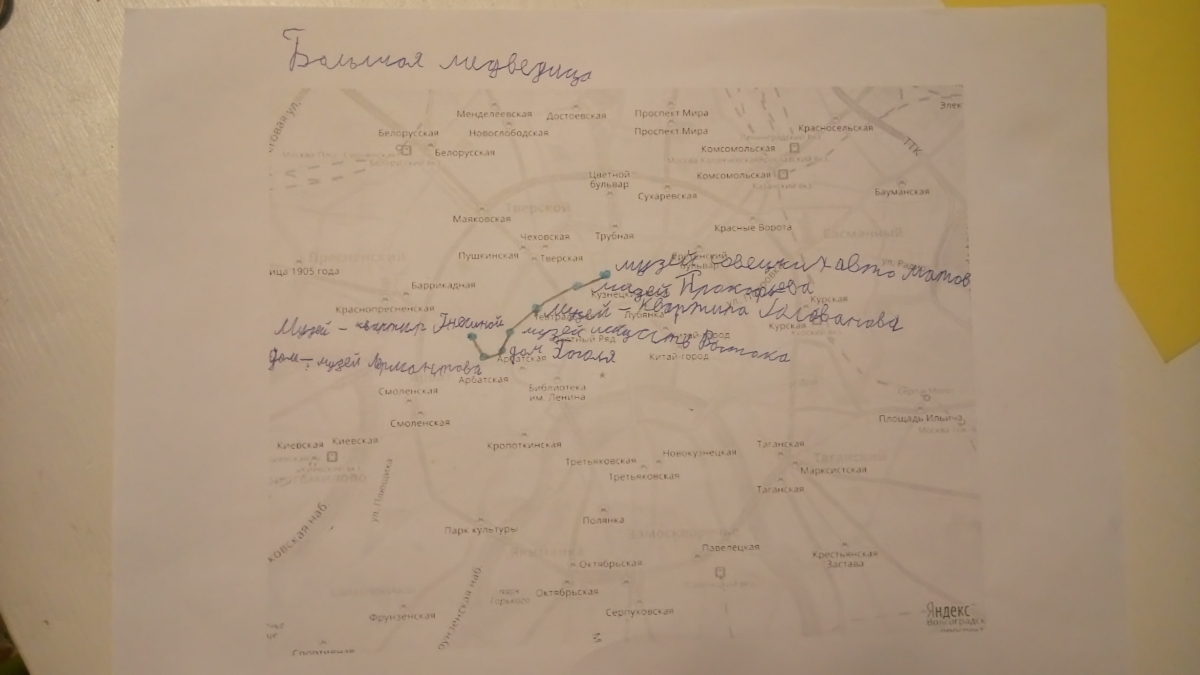 Большая медведица
Менделеевская
Достоевская
Проспект Мира
Элек
Белорусская
Новослободская
Проспект Мира
Красносельская
Белорусская
Комсомольская
Комсомольская
Цветной
бульвар
Сухаревская
Бауманская
Тверской
Маяковская
Чеховская
Трубная
Красные Ворота
Басманный
Пушкинская
Тверская
Пресненский
ица 1905 года
музей советских автоматов
Баррикадная
музей Прокофьева
Кузнецк
Курская
Краснопресненская
Лубянка
музей - квартира Голованова
Музей - квартир Гнесиной
музей искусств Востока
Курская
тный Ряд
Китай-город
дом Гоголя
Дом - музей Лермонтова
Арбатская
Арбатская
Смоленская
Библиотека
им. Ленина
Смоленская
Площадь Ильича
Киевская
Киевская
Кропоткинская
Новокузнецкая
Таганская
Таганский
Третьяковская
Марксистская
Третьяковская
Таганская
ул. Плющиха
ковская наб
Полянка
Парк культуры
Якиманка
Замоскворечье
Павелецкая
Крестьянская
Застава
Октябрьская
Октябрьская
парк
Горького
Серпуховская
Фрунзенская
рунзенская наб
Яндекс
Волгоградск
Спортивная